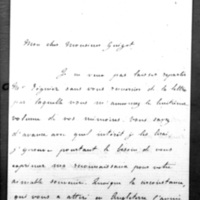 Mon cher Monsieur Guizot
Je ne veux pas laisser repartir
sans vous remercier de la lettre
par laquelle vous m'annoncez le huitième
volume de vos mémoires. Vous savez
d'avance avec quel intérêt je les lirai,
j'éprouve pourtant le besoin de vous
exprimer ma reconnaissance pour votre
aimable souvenir. Lorsque les circonstances
qui vous a attiré en Angleterre j'aurais